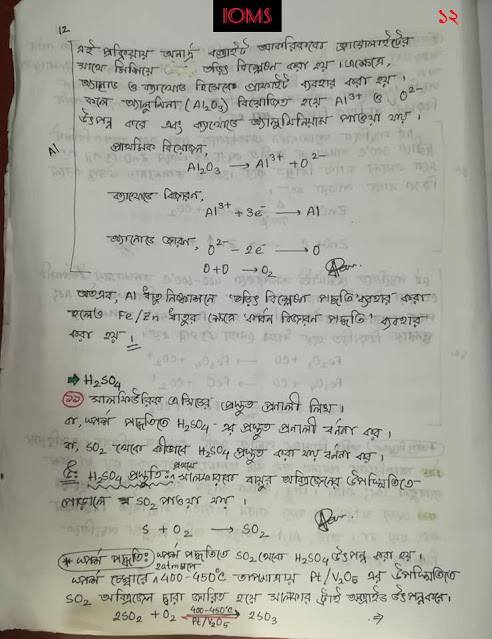 IOMS
১২
12
এই প্রক্রিয়ায় অনার্দ্র বক্সাইট আকরিককে ক্রায়োলাইটের
সাথে মিশিয়ে তড়িৎ বিশ্লেষণ করা হয়। এক্ষেত্রে,
অ্যানোড ও ক্যাথোড হিসেবে গ্রাফাইট ব্যবহার করা হয়।
ফলে অ্যালুমিনা (Al₂O₃) বিয়োজিত হয়ে Al³⁺ ও O²⁻
উৎপন্ন করে এবং ক্যাথোডে অ্যালুমিনিয়াম পাওয়া যায়।
Al
প্রাথমিক বিয়োজন,
Al₂O₃ ⟶ Al³⁺ + O²⁻
ক্যাথোডে বিজারণ,
Al³⁺ + 3e⁻ ⟶ Al
অ্যানোডে জারণ, O²⁻ − 2e⁻ ⟶ O
O + O ⟶ O₂
অতএব, Al ধাতু নিষ্কাশনে তড়িৎ বিশ্লেষণ পদ্ধতি ব্যবহার করা
হলেও Fe/Zn ধাতুর ক্ষেত্রে কার্বন বিজারণ পদ্ধতি ব্যবহার
করা হয়।
➡ H₂SO₄
১১ সালফিউরিক এসিডের প্রস্তুত প্রণালী লিখ।
বা, স্পর্শ পদ্ধতিতে H₂SO₄ এর প্রস্তুত প্রণালী বর্ণনা কর।
বা, SO₂ থেকে কীভাবে H₂SO₄ প্রস্তুত করা যায় বর্ণনা কর।
উ: H₂SO₄ প্রস্তুতি: প্রথমে সালফারকে বায়ুর অক্সিজেনের উপস্থিতিতে
পোড়ালে SO₂ পাওয়া যায়।
S + O₂ ⟶ SO₂
* স্পর্শ পদ্ধতি: স্পর্শ পদ্ধতিতে SO₂ থেকে H₂SO₄ উৎপন্ন করা হয়।
স্পর্শ চেম্বারে 2atm চাপে 400-450°C তাপমাত্রায় Pt/V₂O₅ এর উপস্থিতিতে
SO₂ অক্সিজেন দ্বারা জারিত হয়ে সালফার ট্রাই অক্সাইড উৎপন্ন করে।
2SO₂ + O₂ 400-450°C Pt/V₂O₅ ⟶ 2SO₃ ⇒